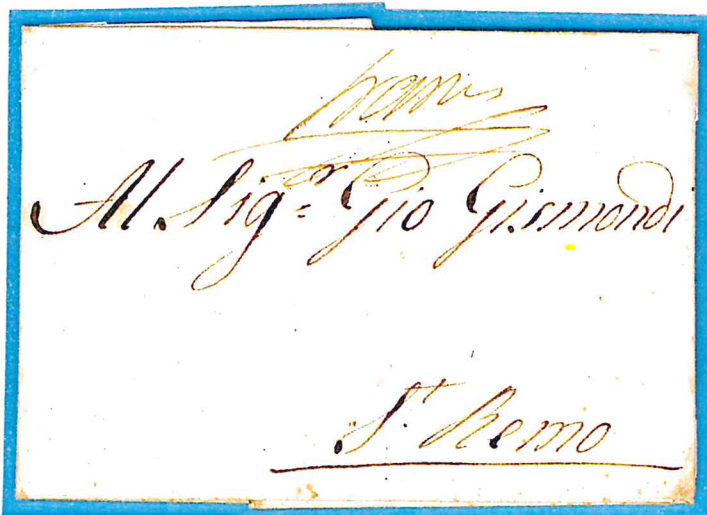 franca
Al Sig.r Gio Gismondi
S.t Remo